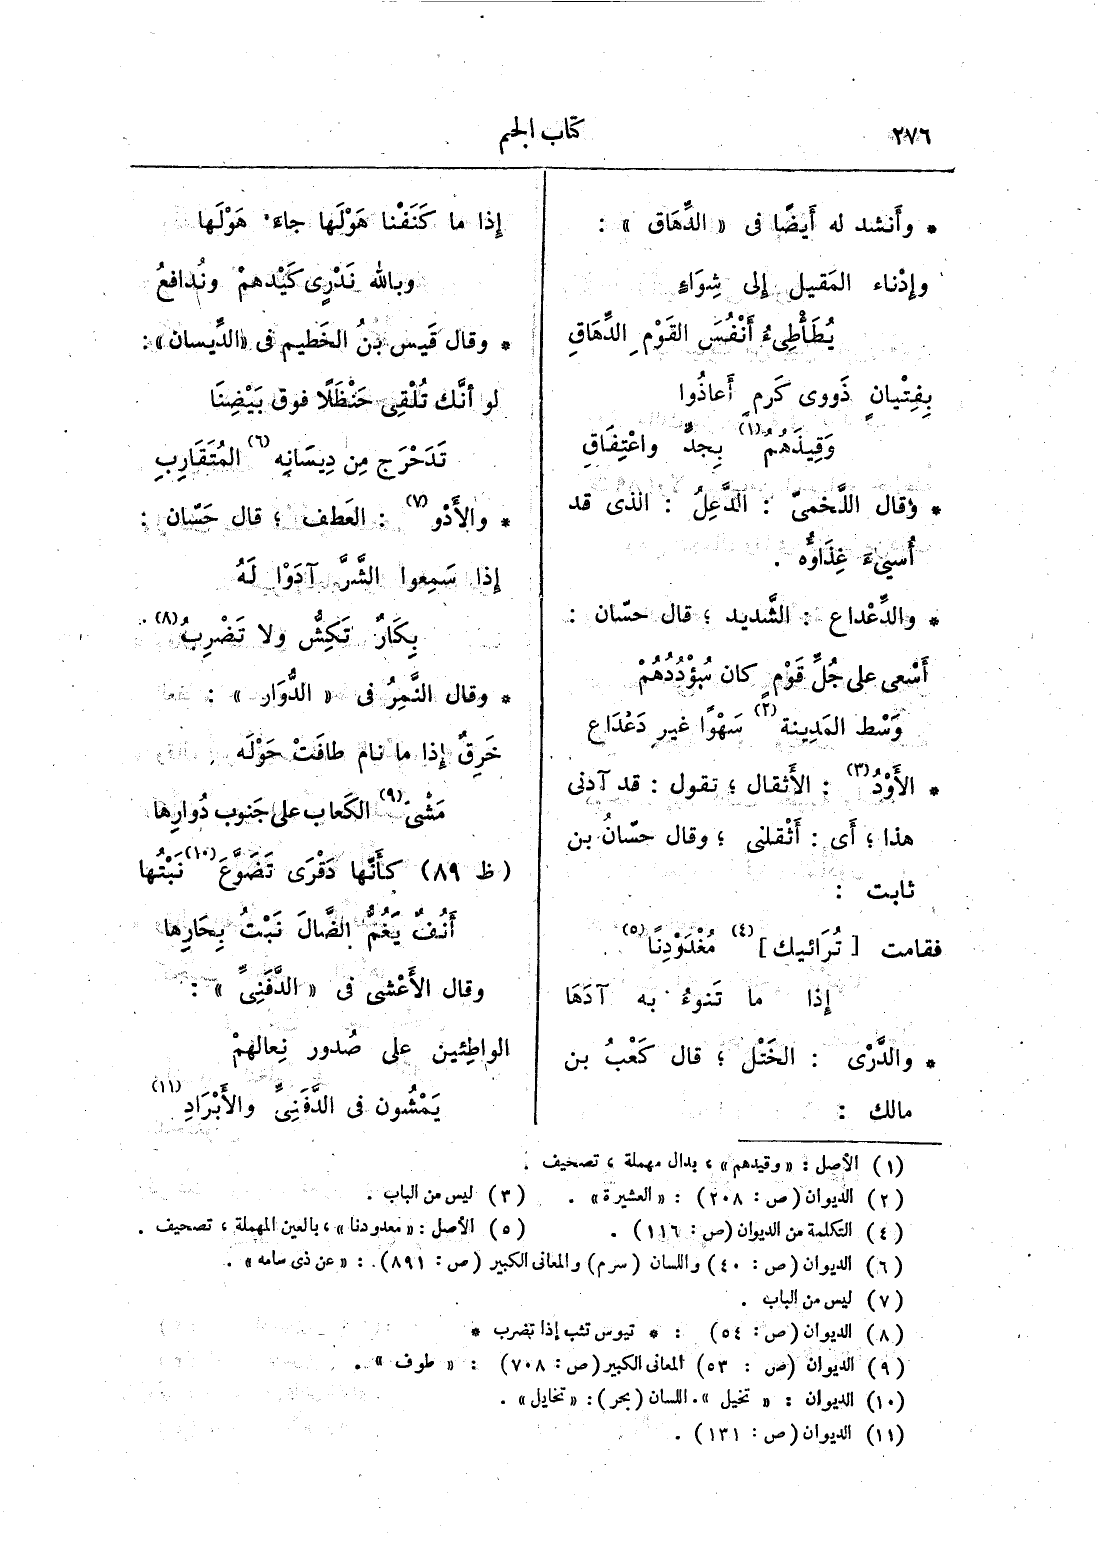 ٢٧٦
كتاب الجيم
* وأَنشد له أَيضًا فى « الدِّهَاق » :
وإِدْناء المَقيل إِلى شِوَاءٍ
يُطَأْطِىءُ أَنْفُسَ القَوْمِ الدِّهَاقِ
بِفِتْيانٍ ذَوِى كَرمٍ أَعاذُوا
وَقِيذَهُمُ(١) بِجدٍّ واعْتِفَاقِ
* وقال اللَّخمىّ : الدَّعِلُ : الذى قد
أُسىِءَ غِذَاؤُه .
* والدِّعْداع : الشَّديد ؛ قال حسّان :
أَسْعى على جُلِّ قَوْمٍ كان سُؤْدُدُهُمْ
وَسْط المَدِينة(٢) سَهْوًا غيرِ دَعْدَاعِ
* الأَوْدُ(٣) : الأَثقال ؛ تقول : قد آدنى
هذا ؛ أَى : أَثْقلنى ؛ وقال حسّانُ بن
ثابت :
فقامت [ تُرَائيك ](٤) مُغْدَوْدِنًا(٥)
إِذا ما تَنوءُ به آدَهَا
* والدَّرْى : الخَتْل ؛ قال كَعْبُ بن
مالك :
إِذا ما كَنَفْنا هَوْلَها جاءَ هَوْلَها
وبالله نَدْرِى كَيْدهمْ ونُدافعُ
* وقال قَيس بنُ الخَطيم فى «الدِّيسان» :
لو أنَّك تُلْقِى حَنْظَلًا فوق بَيْضِنَا
تَدَحْرَج مِن دِيسَانِه(٦) المُتَقَارِبِ
* والأَدْو(٧) : العَطف ؛ قال حَسّان :
إِذا سَمِعوا الشَّرَّ آدَوْا لَهُ
بِكَارٌ تَكِشُّ ولا تَضْرِبُ(٨) .
* وقال النَّمِرُ فى « الدُّوَار » :
خَرِقٌ إِذا ما نام طافَتْ حَوْلَه
مَشْىَ(٩) الكَعاب على جَنوب دُوارِها
(ظ ٨٩) كأَنَّها دَقْرَى تَضَوَّعَ(١٠) نَبْتُها
أُنُفٌ يَغُمُّ الضَّالَ نَبْتُ بِحَارِها
وقال الأَعْشى فى « الدَّفَنِىِّ » :
الواطِئين على صُدور نِعالهمْ
يَمْشُون فى الدَّفَنِىِّ والأَبْرَادِ(١١)
(١) الأصل : «وقيدهم» ، بدال مهملة ، تصحيف .
(٢) الديوان (ص : ٢٠٨) : «العشيرة» .
(٣) ليس من الباب .
(٤) التكلمة من الديوان (ص : ١١٦) .
(٥) الأصل : «معدودنا» ، بالعين المهملة ، تصحيف .
(٦) الديوان (ص : ٤٠) واللسان (سرم) والمعانى الكبير (ص : ٨٩١) . : «عن ذى سامه» .
(٧) ليس من الباب .
(٨) الديوان (ص : ٥٤) : * تيوس تثب إذا تضرب *
(٩) الديوان (ص : ٥٣) المعانى الكبير (ص : ٧٠٨) : « طوف » .
(١٠) الديوان : « تخيل » . اللسان (بحر) : «تخايل» .
(١١) الديوان (ص : ١٣١) .